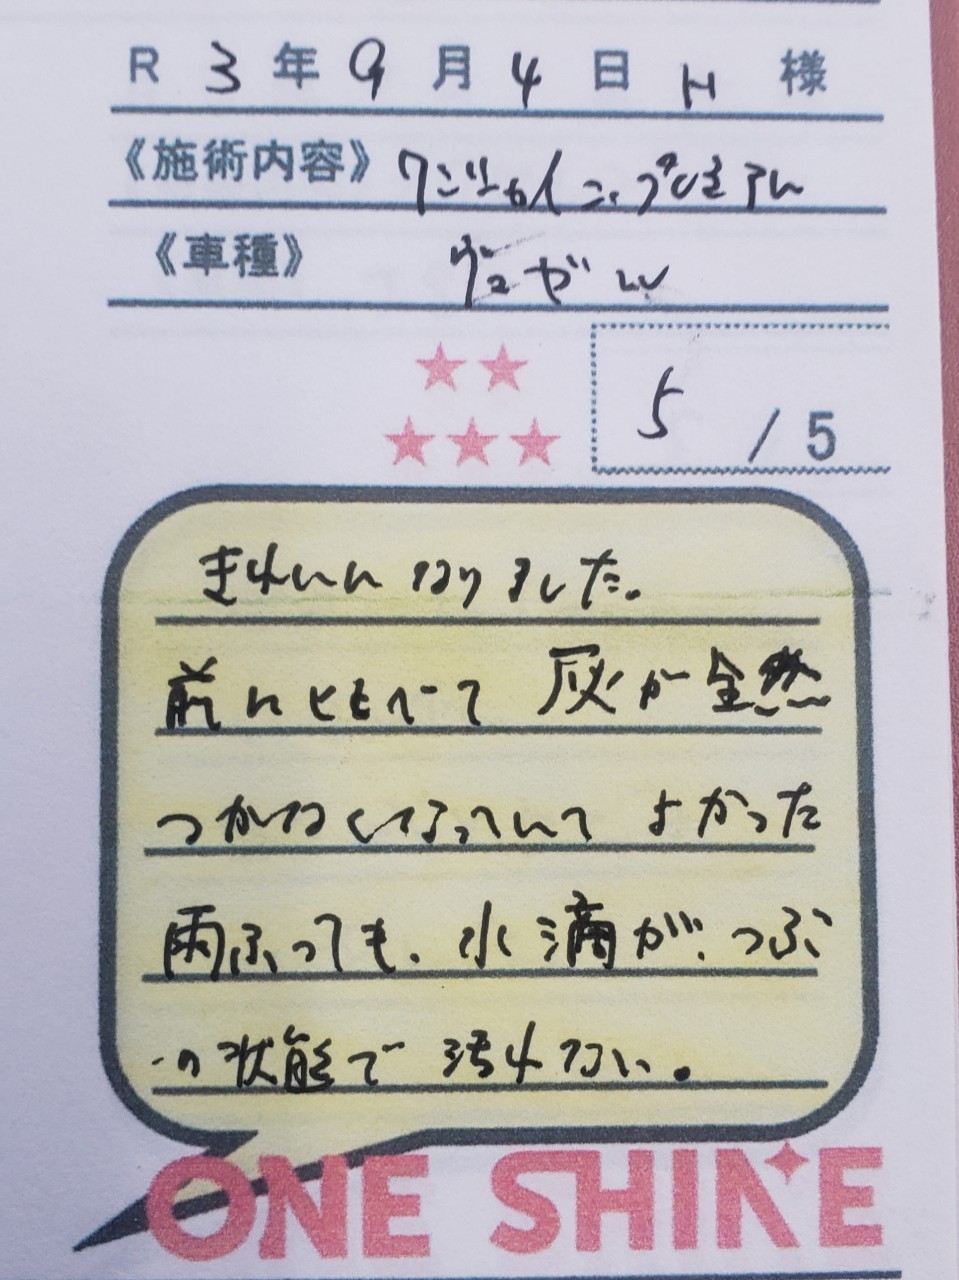 R 3年 9月 4日 H 様
《施術内容》ワンシャインプレミアム
《車種》ヴェゼル
5 / 5
きれいになりました。
前にともべて 灰が全然
つかなくなっていて よかった
雨ふっても、水滴が、つぶ
の状態で 汚れない。
ONE SHINE